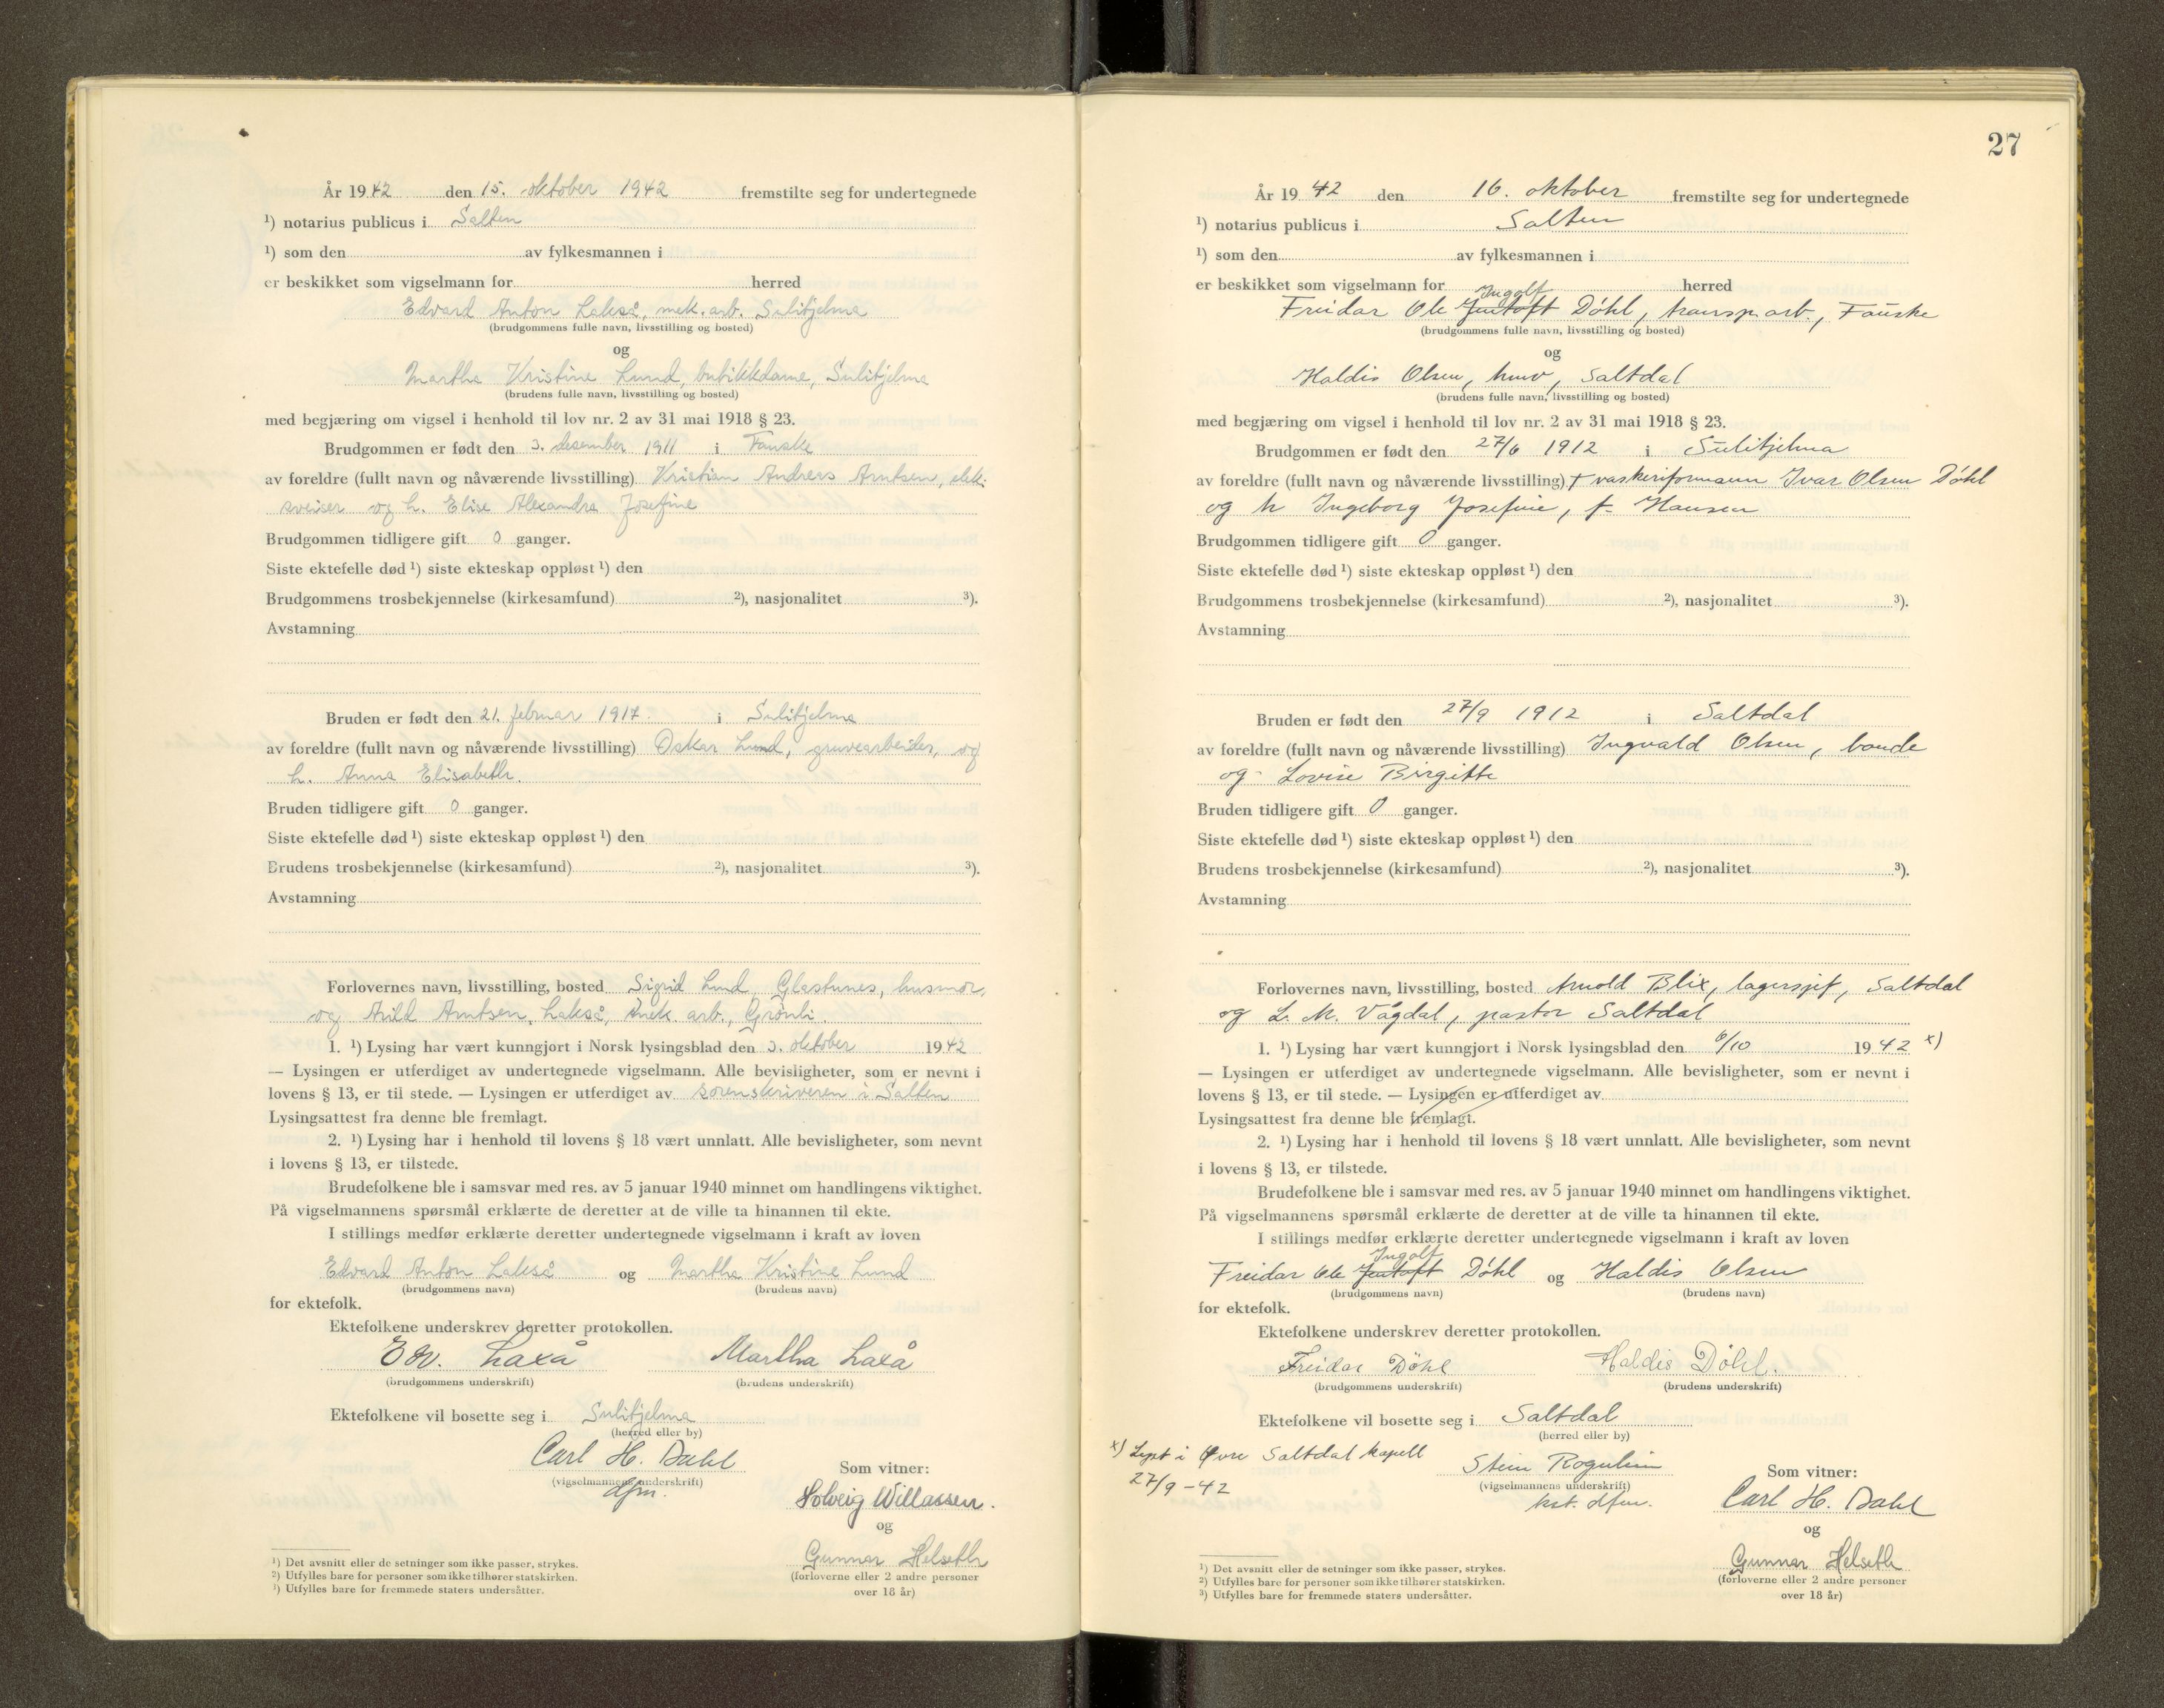 År 1942 den 15. oktober 1942 fremstilte seg for undertegnede
¹) notarius publicus i Salten
¹) som den av fylkesmannen i
er beskikket som vigselmann for herred
Edvard Anton Lakså, mek. arb. Sulitjelma
(brudgommens fulle navn, livsstilling og bosted)
og
Martha Kristine Lund, butikkdame, Sulitjelma
(brudens fulle navn, livsstilling og bosted)
med begjæring om vigsel i henhold til lov nr. 2 av 31 mai 1918 § 23.
Brudgommen er født den 3. desember 1911 i Fauske
av foreldre (fullt navn og nåværende livsstilling) Kristian Andreas Arntsen, elek.
sveiser og h. Elise Alexandra Josefine
Brudgommen tidligere gift 0 ganger.
Siste ektefelle død ¹) siste ekteskap oppløst ¹) den
Brudgommens trosbekjennelse (kirkesamfund) ²), nasjonalitet ³).
Avstamning
Bruden er født den 21. februar 1917. i Sulitjelma
av foreldre (fullt navn og nåværende livsstilling) Oskar Lund, gruvearbeider, og
h. Anna Elisabeth.
Bruden tidligere gift 0 ganger.
Siste ektefelle død ¹) siste ekteskap oppløst ¹) den
Brudens trosbekjennelse (kirkesamfund) ²), nasjonalitet ³).
Avstamning
Forlovernes navn, livsstilling, bosted Sigrid Lund Glastunes, husmor,
og Arild Arntsen, Lakså, mek. arb., Grønli.
1. ¹) Lysing har vært kunngjort i Norsk lysingsblad den 3. oktober 1942
— Lysingen er utferdiget av undertegnede vigselmann. Alle bevisligheter, som er nevnt i
lovens § 13, er til stede. — Lysingen er utferdiget av sorenskriveren i Salten
Lysingsattest fra denne ble fremlagt.
2. ¹) Lysing har i henhold til lovens § 18 vært unnlatt. Alle bevisligheter, som nevnt
i lovens § 13, er tilstede.
Brudefolkene ble i samsvar med res. av 5 januar 1940 minnet om handlingens viktighet.
På vigselmannens spørsmål erklærte de deretter at de ville ta hinannen til ekte.
I stillings medfør erklærte deretter undertegnede vigselmann i kraft av loven
Edvard Anton Lakså og Martha Kristine Lund
(brudgommens navn) (brudens navn)
for ektefolk.
Ektefolkene underskrev deretter protokollen.
Edv. Laxå Martha Laxå
(brudgommens underskrift) (brudens underskrift)
Ektefolkene vil bosette seg i Sulitjelma
(herred eller by)
Carl H. Dahl
(vigselmannens underskrift)
dfm.
Som vitner:
Solveig Willassen.
og
Gunnar Helseth
(forloverne eller 2 andre personer
over 18 år)
¹) Det avsnitt eller de setninger som ikke passer, strykes.
²) Utfylles bare for personer som ikke tilhører statskirken.
³) Utfylles bare for fremmede staters undersåtter.
27
År 1942 den 16. oktober fremstilte seg for undertegnede
¹) notarius publicus i Salten
¹) som den av fylkesmannen i
er beskikket som vigselmann for herred
Ingolf
Freidar Ole Jentoft Døhl, transp. arb., Fauske
(brudgommens fulle navn, livsstilling og bosted)
og
Haldis Olsen, hmv, Saltdal
(brudens fulle navn, livsstilling og bosted)
med begjæring om vigsel i henhold til lov nr. 2 av 31 mai 1918 § 23.
Brudgommen er født den 27/6 1912 i Sulitjelma
av foreldre (fullt navn og nåværende livsstilling) † vaskeriformann Ivar Olsen Døhl
og h Ingeborg Josefine, f. Hansen
Brudgommen tidligere gift 0 ganger.
Siste ektefelle død ¹) siste ekteskap oppløst ¹) den
Brudgommens trosbekjennelse (kirkesamfund) ²), nasjonalitet ³).
Avstamning
Bruden er født den 27/9 1912 i Saltdal
av foreldre (fullt navn og nåværende livsstilling) Ingvald Olsen, bonde
og Lovise Birgitte
Bruden tidligere gift 0 ganger.
Siste ektefelle død ¹) siste ekteskap oppløst ¹) den
Brudens trosbekjennelse (kirkesamfund) ²), nasjonalitet ³).
Avstamning
Forlovernes navn, livsstilling, bosted Arnold Blix, lagersjef, Saltdal
og L. M. Vågdal, pastor Saltdal
1. ¹) Lysing har vært kunngjort i Norsk lysingsblad den 6/10 1942 x)
— Lysingen er utferdiget av undertegnede vigselmann. Alle bevisligheter, som er nevnt i
lovens § 13, er til stede. — Lysingen er utferdiget av
Lysingsattest fra denne ble fremlagt.
2. ¹) Lysing har i henhold til lovens § 18 vært unnlatt. Alle bevisligheter, som nevnt
i lovens § 13, er tilstede.
Brudefolkene ble i samsvar med res. av 5 januar 1940 minnet om handlingens viktighet.
På vigselmannens spørsmål erklærte de deretter at de ville ta hinannen til ekte.
I stillings medfør erklærte deretter undertegnede vigselmann i kraft av loven
Ingolf
Freidar Ole Jentoft Døhl og Haldis Olsen
(brudgommens navn) (brudens navn)
for ektefolk.
Ektefolkene underskrev deretter protokollen.
Freidar Döhl Haldis Döhl.
(brudgommens underskrift) (brudens underskrift)
Ektefolkene vil bosette seg i Saltdal
(herred eller by)
x) Lyst i Øvre Saltdal kapell
27/9 - 42
Stein Rognlien
(vigselmannens underskrift)
kst. dfm.
Som vitner:
Carl H. Dahl
og
Gunnar Helseth
(forloverne eller 2 andre personer
over 18 år)
¹) Det avsnitt eller de setninger som ikke passer, strykes.
²) Utfylles bare for personer som ikke tilhører statskirken.
³) Utfylles bare for fremmede staters undersåtter.